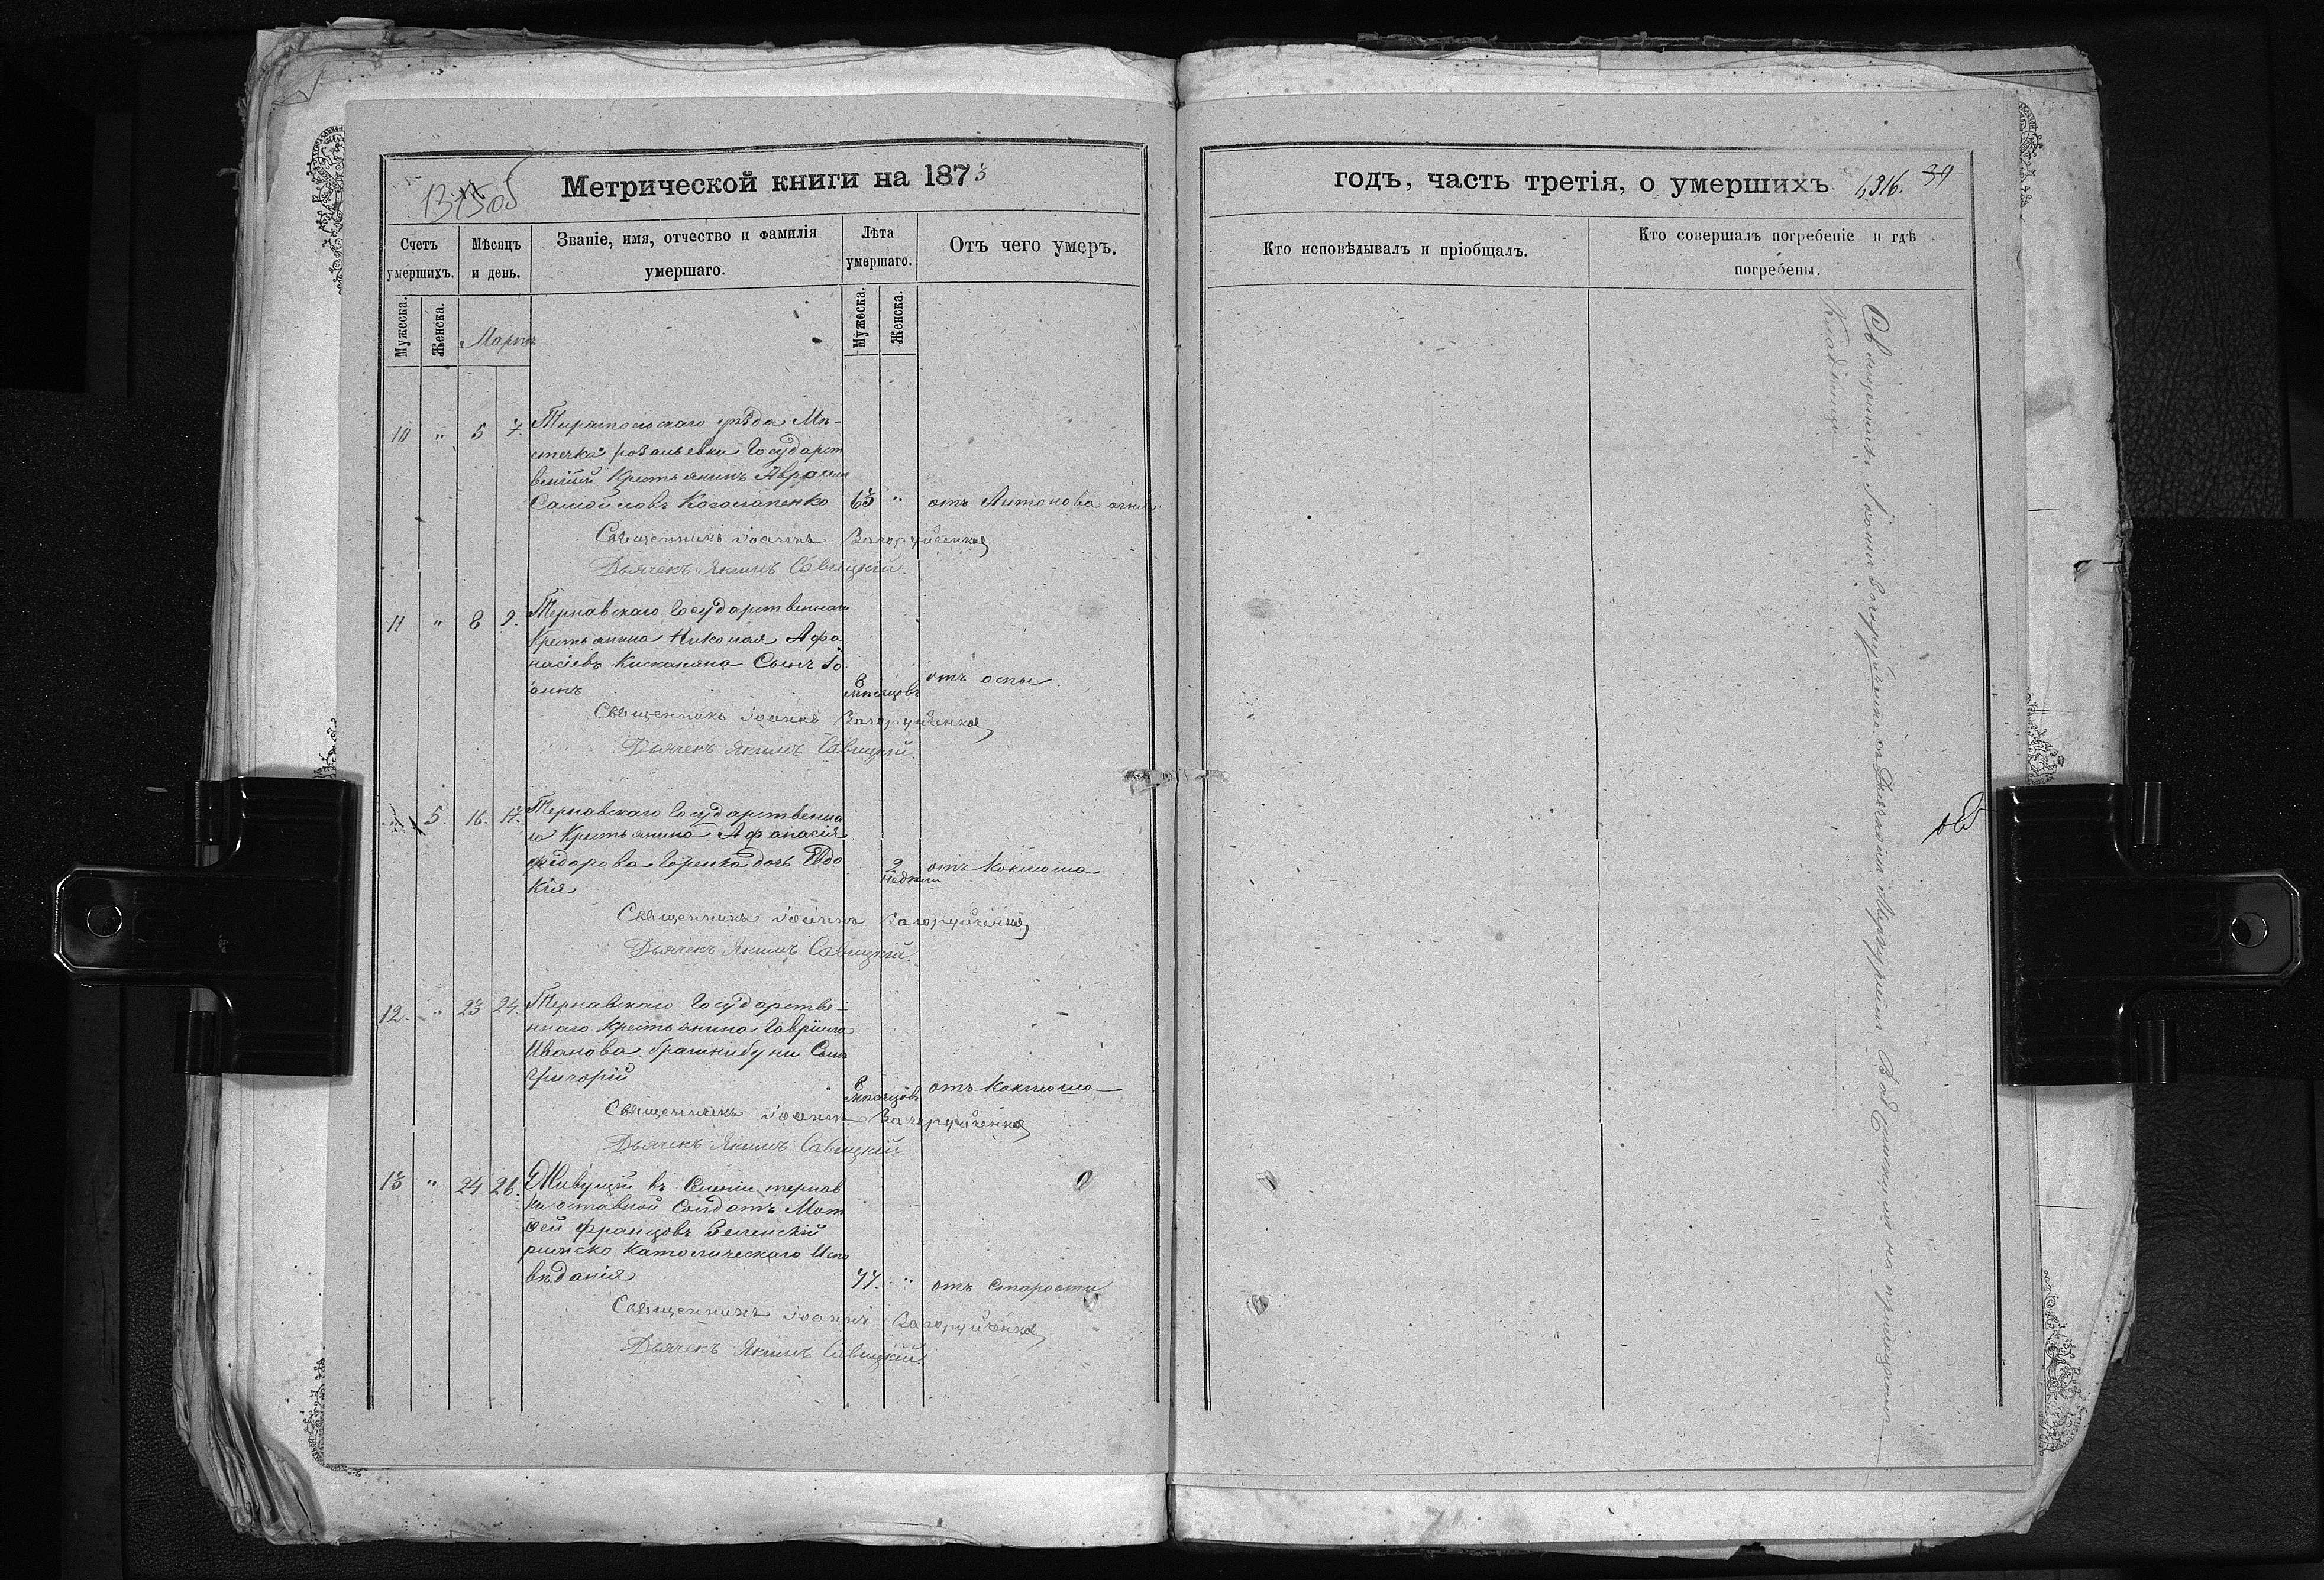 Метрической книги на 1873
Счетъ умершихъ.
Мѣсяцъ и день.
Званіе, имя, отчество и фамилія умершаго.
Лѣта умершаго.
Отъ чего умеръ.
Мужеска.
Женска.
Мартъ
Мужеска.
Женска.
10 " 5 7. Тираспольскаго уѣзда Мѣ-
стечка Государст
венный Крестьянинъ Авраам
Самойловъ Косолапенко 63 " отъ Антонова огня
Священникъ Іоаннъ Загоруйченко
Дьячекъ Якимъ Савицкій.
11 " 8 9. Тернавскаго Государственнаго
Крестьянина Николая Афа
насіевъ Кискаляна Сынъ Іо
аннъ 8 мѣсяцовъ отъ оспы.
Священникъ Іоаннъ Загоруйченко
Дьячекъ Якимъ Савицкій.
" 5. 16. 17. Тернавскаго Государственна
го Крестьянина Афанасія
Федорова дочь Евдо
кія 2 недѣли отъ Коклюша
Священникъ Іоаннъ Загоруйченко
Дьячекъ Якимъ Савицкій.
12. " 23 24. Тернавскаго Государстве-
ннаго Крестьянина Гавріила
Иванова Сынъ
Григорій 8 мѣсяцовъ отъ Коклюша
Священникъ Іоаннъ Загоруйченко
Дьячекъ Якимъ Савицкій
13 " 24 26. Живущій въ Селеніи тернов
ки оставной Солдатъ Мат
вей Францовъ Зеленскій
римско Католическаго Испо
вѣданія 77. " отъ Старости
Священникъ Іоаннъ Загоруйченко
Дьячекъ Якимъ Савицкій.
годъ, часть третія, о умершихъ. 1316. 39
Кто исповѣдывалъ и пріобщалъ.
Кто совершалъ погребеніе и гдѣ погребены.
Священникъ Іоаннъ Загоруйченко съ Дьячкомъ на приходскомъ
Кладбищѣ